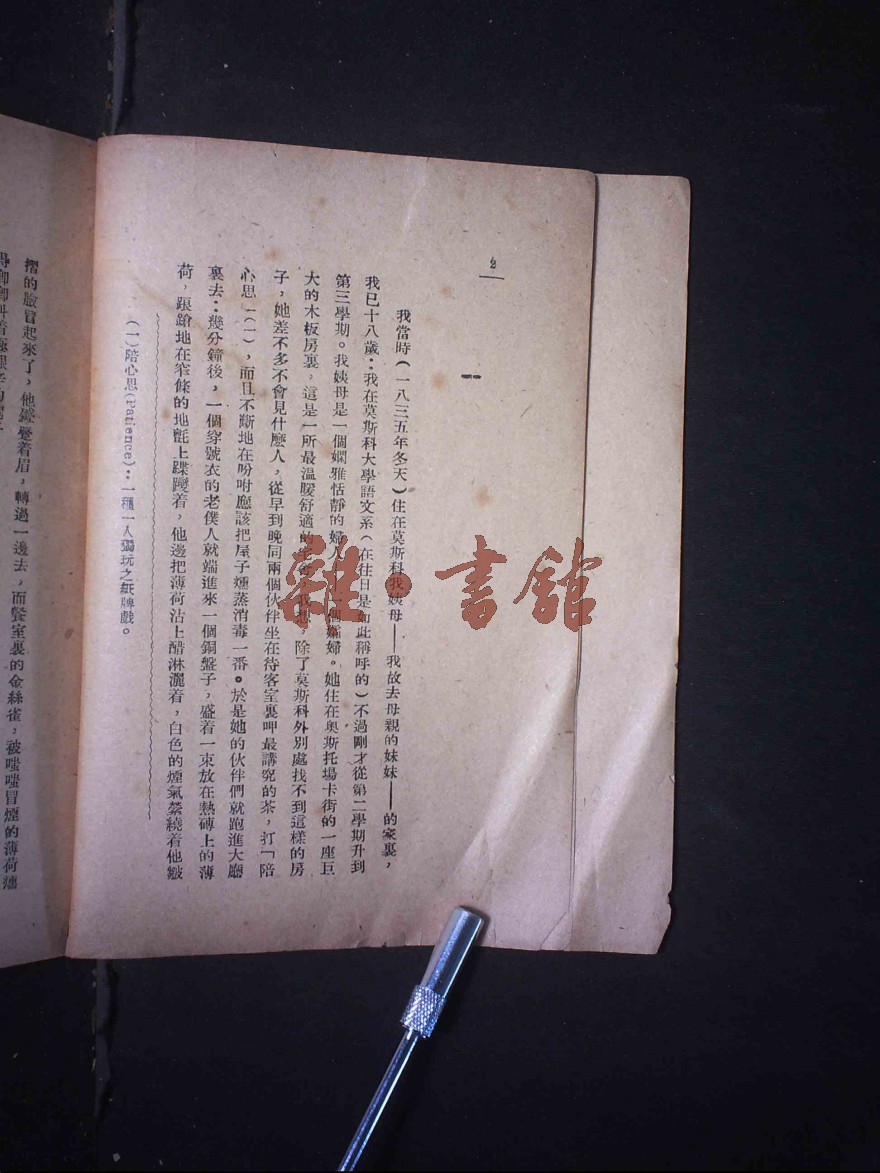 2
一
我當時（一八三五年冬天）住在莫斯科我姨母——我故去母親的妹妹——的家裏，
我已十八歲：我在莫斯科大學語文系（在往日是如此稱呼的）不過剛才從第二學期升到
第三學期。我姨母是一個嫻雅恬靜的婦人，一個孀婦。她住在奧斯托場卡街的一座巨
大的木板房裏，這是一所最溫暖舒適的，我想，除了莫斯科外別處找不到這樣的房
子，她差不多不會見什麼人，從早到晚同兩個伙伴坐在待客室裏呷最講究的茶，打「陪
心思」（一），而且不斷地在吩咐應該把屋子燻蒸消毒一番。於是她的伙伴們就跑進大廳
裏去：幾分鐘後，一個穿號衣的老僕人就端進來一個銅盤子，盛着一束放在熱磚上的薄
荷，踉蹌地在窄條的地氈上蹀躞着，他邊把薄荷沾上醋淋灑着，白色的煙氣縈繞着他皺
（一）陪心思(Patience)：一種一人獨玩之紙牌戲。
摺的臉冒起來了，他蹙着眉，轉過一邊去，而餐室裏的金絲雀，被嗤嗤冒煙的薄荷
雜·書館